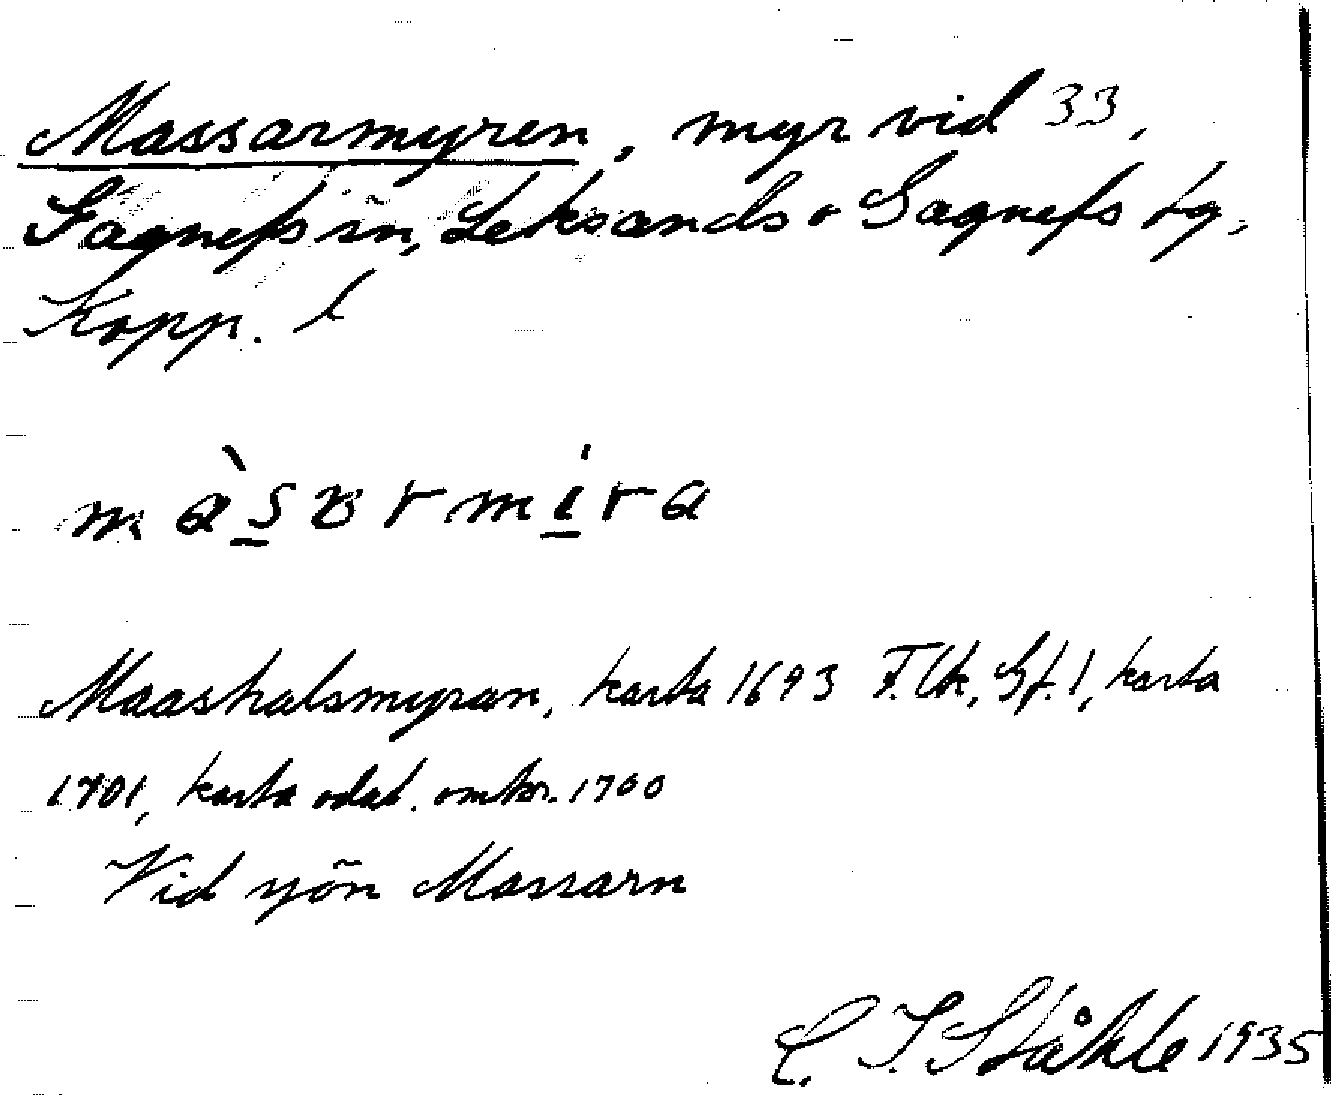 Massarmyren, myr vid 33,
Gagnefs sn, Leksands o Gagnefs tg,
Kopp. l
màsɐrmira
Maashalsmyran, karta 1693 F.lk, Gf. 1, karta
1701, karta odat. omkr. 1700
Vid sjön Massarn
C. I. Ståhle 1935